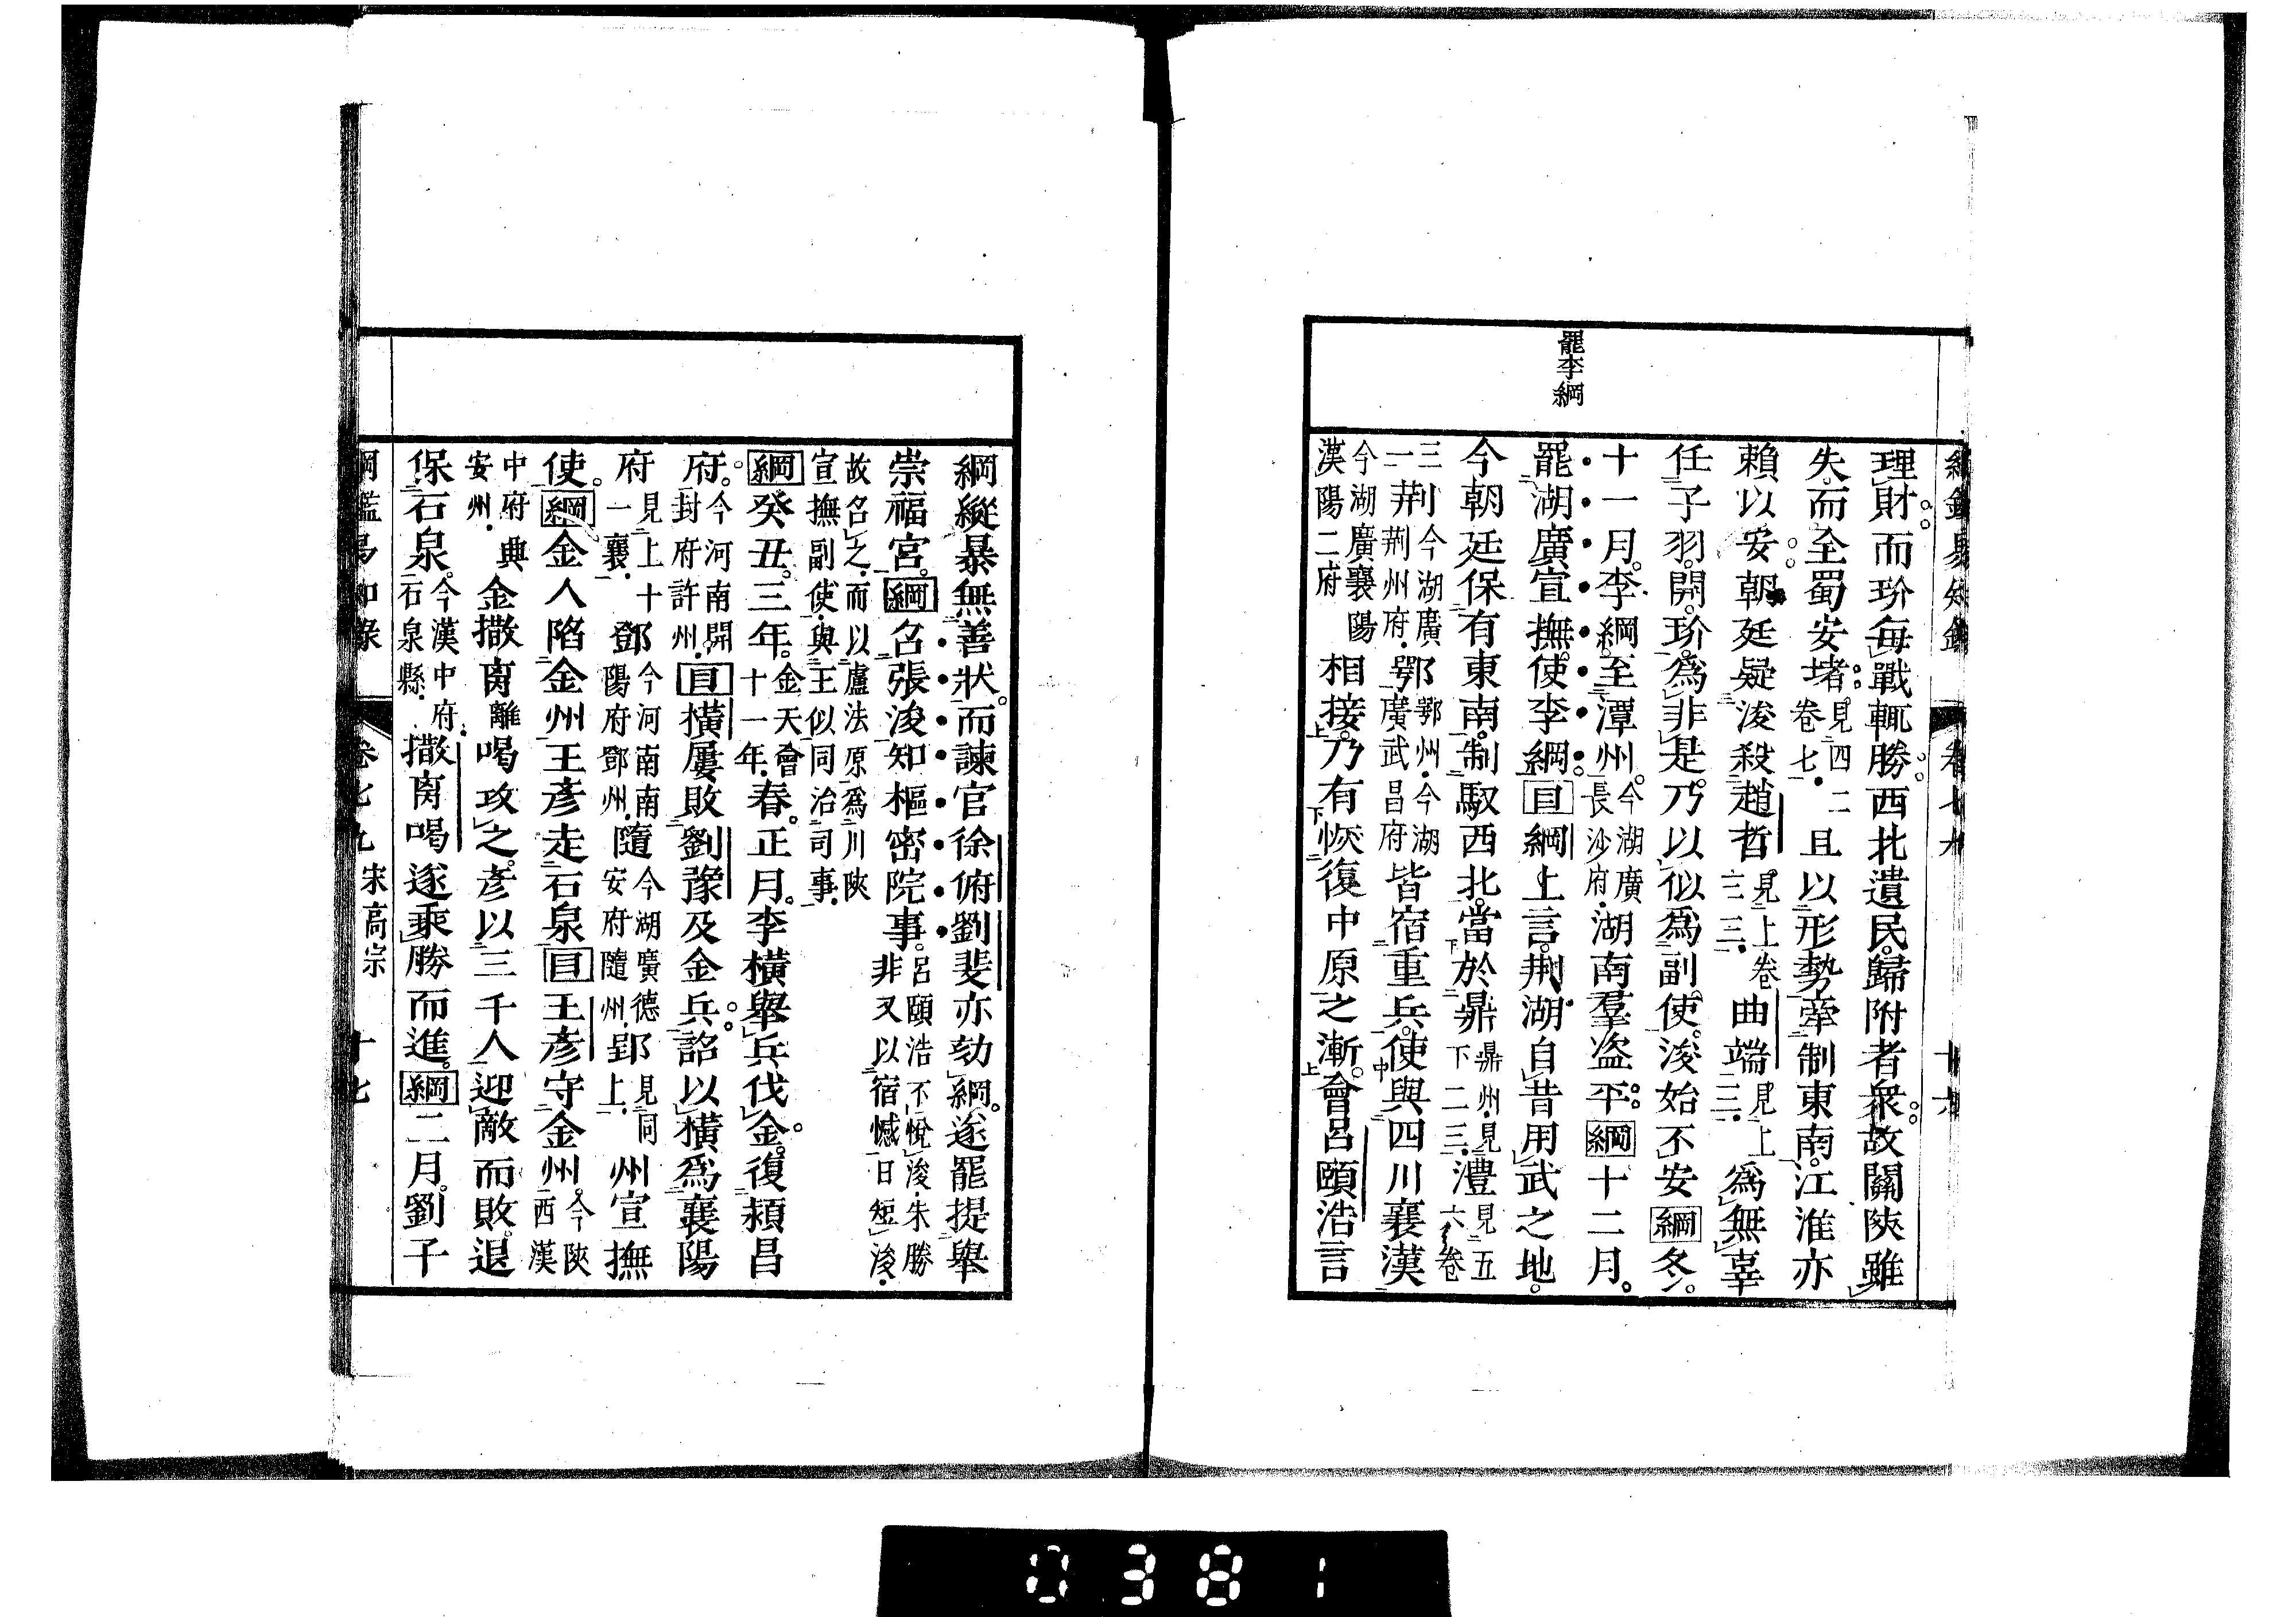 罷李綱
理財而玠每戰輒勝西北遺民歸附者衆故關陝雖
失而至蜀安堵見四二卷七且以形勢牽制東南江淮亦
賴以安朝廷疑浚殺趙哲見上卷二三曲端見上二三爲無辜
任子羽開玠爲非是乃以似爲副使浚始不安綱冬
十一月李綱至潭州今湖廣長沙府湖南羣盜平綱十二月
罷湖廣宣撫使李綱目綱上言荆湖自昔用武之地
今朝廷保有東南制馭西北當於鼎鼎州見下二三澧見五六卷
三荆今湖廣一荆州府鄂鄂州今湖廣武昌府皆宿重兵使與四川襄漢
今湖廣襄陽漢陽二府相接乃有恢復中原之漸會呂頤浩言
綱縱暴無善狀而諫官徐俯劉斐亦劾綱遂罷提舉
崇福宮綱召張浚知樞密院事呂頤浩不悅浚朱勝非又以宿憾日短浚
故召之而以盧法原爲川陝宣撫副使與王似同治司事
綱癸丑三年金天會十一年春正月李橫舉兵伐金復潁昌
府今河南開封府許州目橫屢敗劉豫及金兵詔以橫爲襄陽
府見上十一襄鄧今河南南陽府鄧州隨今湖廣德安府隨州郢見同上州宣撫
使綱金人陷金州王彥走石泉目王彥守金州今陝西漢
中府興安州金撒离離喝攻之彥以三千人迎敵而敗退
保石泉今漢中府石泉縣撒离喝遂乘勝而進綱二月劉子
綱鑑易知錄 卷七九 宋高宗 十七
0381